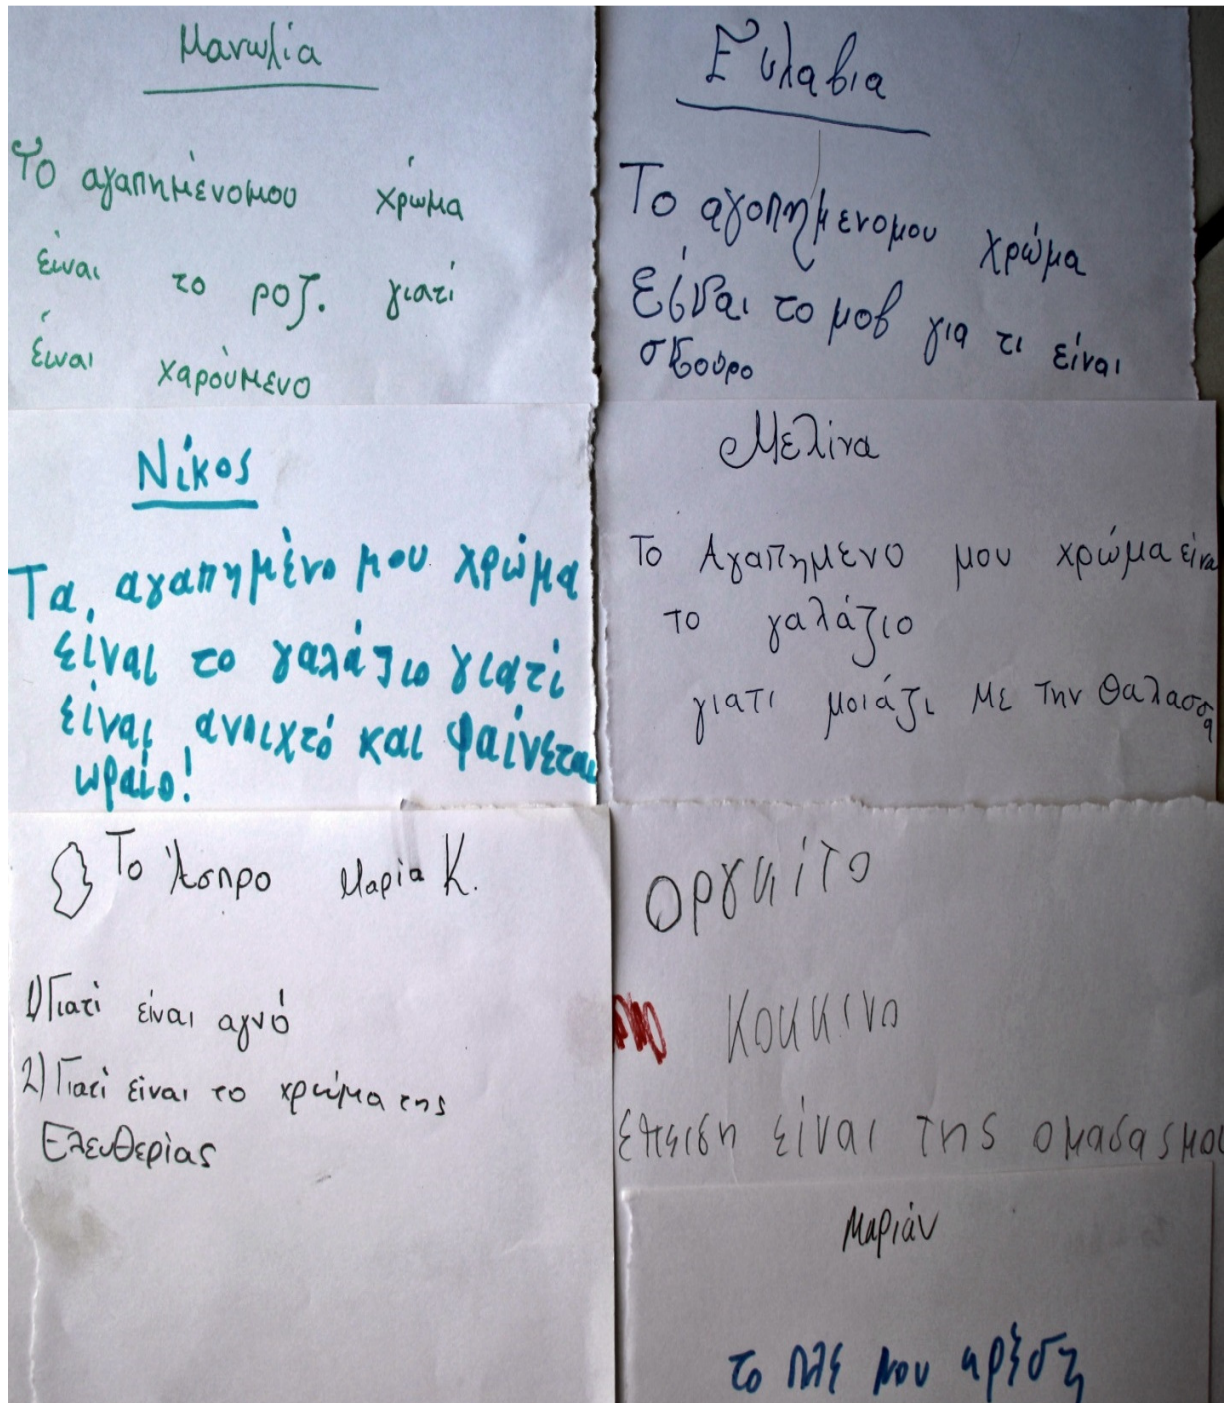 Μανωλία
Το αγαπημένομου χρωμα
είναι το ροζ. γιατί
είναι χαρούμενο
Ευλαβια
Το αγοπημενομου χρώμα
Είναι το μοβ για τι είναι
σκουρο
Νίκος
Τα, αγαπημένο μου χρώμα
είναι το γαλάζιο γιατί
είναι ανοιχτό και φαίνεται
ωραίο!
Μελίνα
Το Αγαπημενο μου χρώμα είνα
το γαλάζιο
γιατι μοιάζι με την θαλασσα
Το Άσπρο Μαρία Κ.
1) Γιατί είναι αγνό
2) Γιατί είναι το χρώμα της
Ελευθερίας
οργκίτο
κοκκινο
επειδη είναι της ομαδας μου
Μαριάν
το πλέ μου αρέση